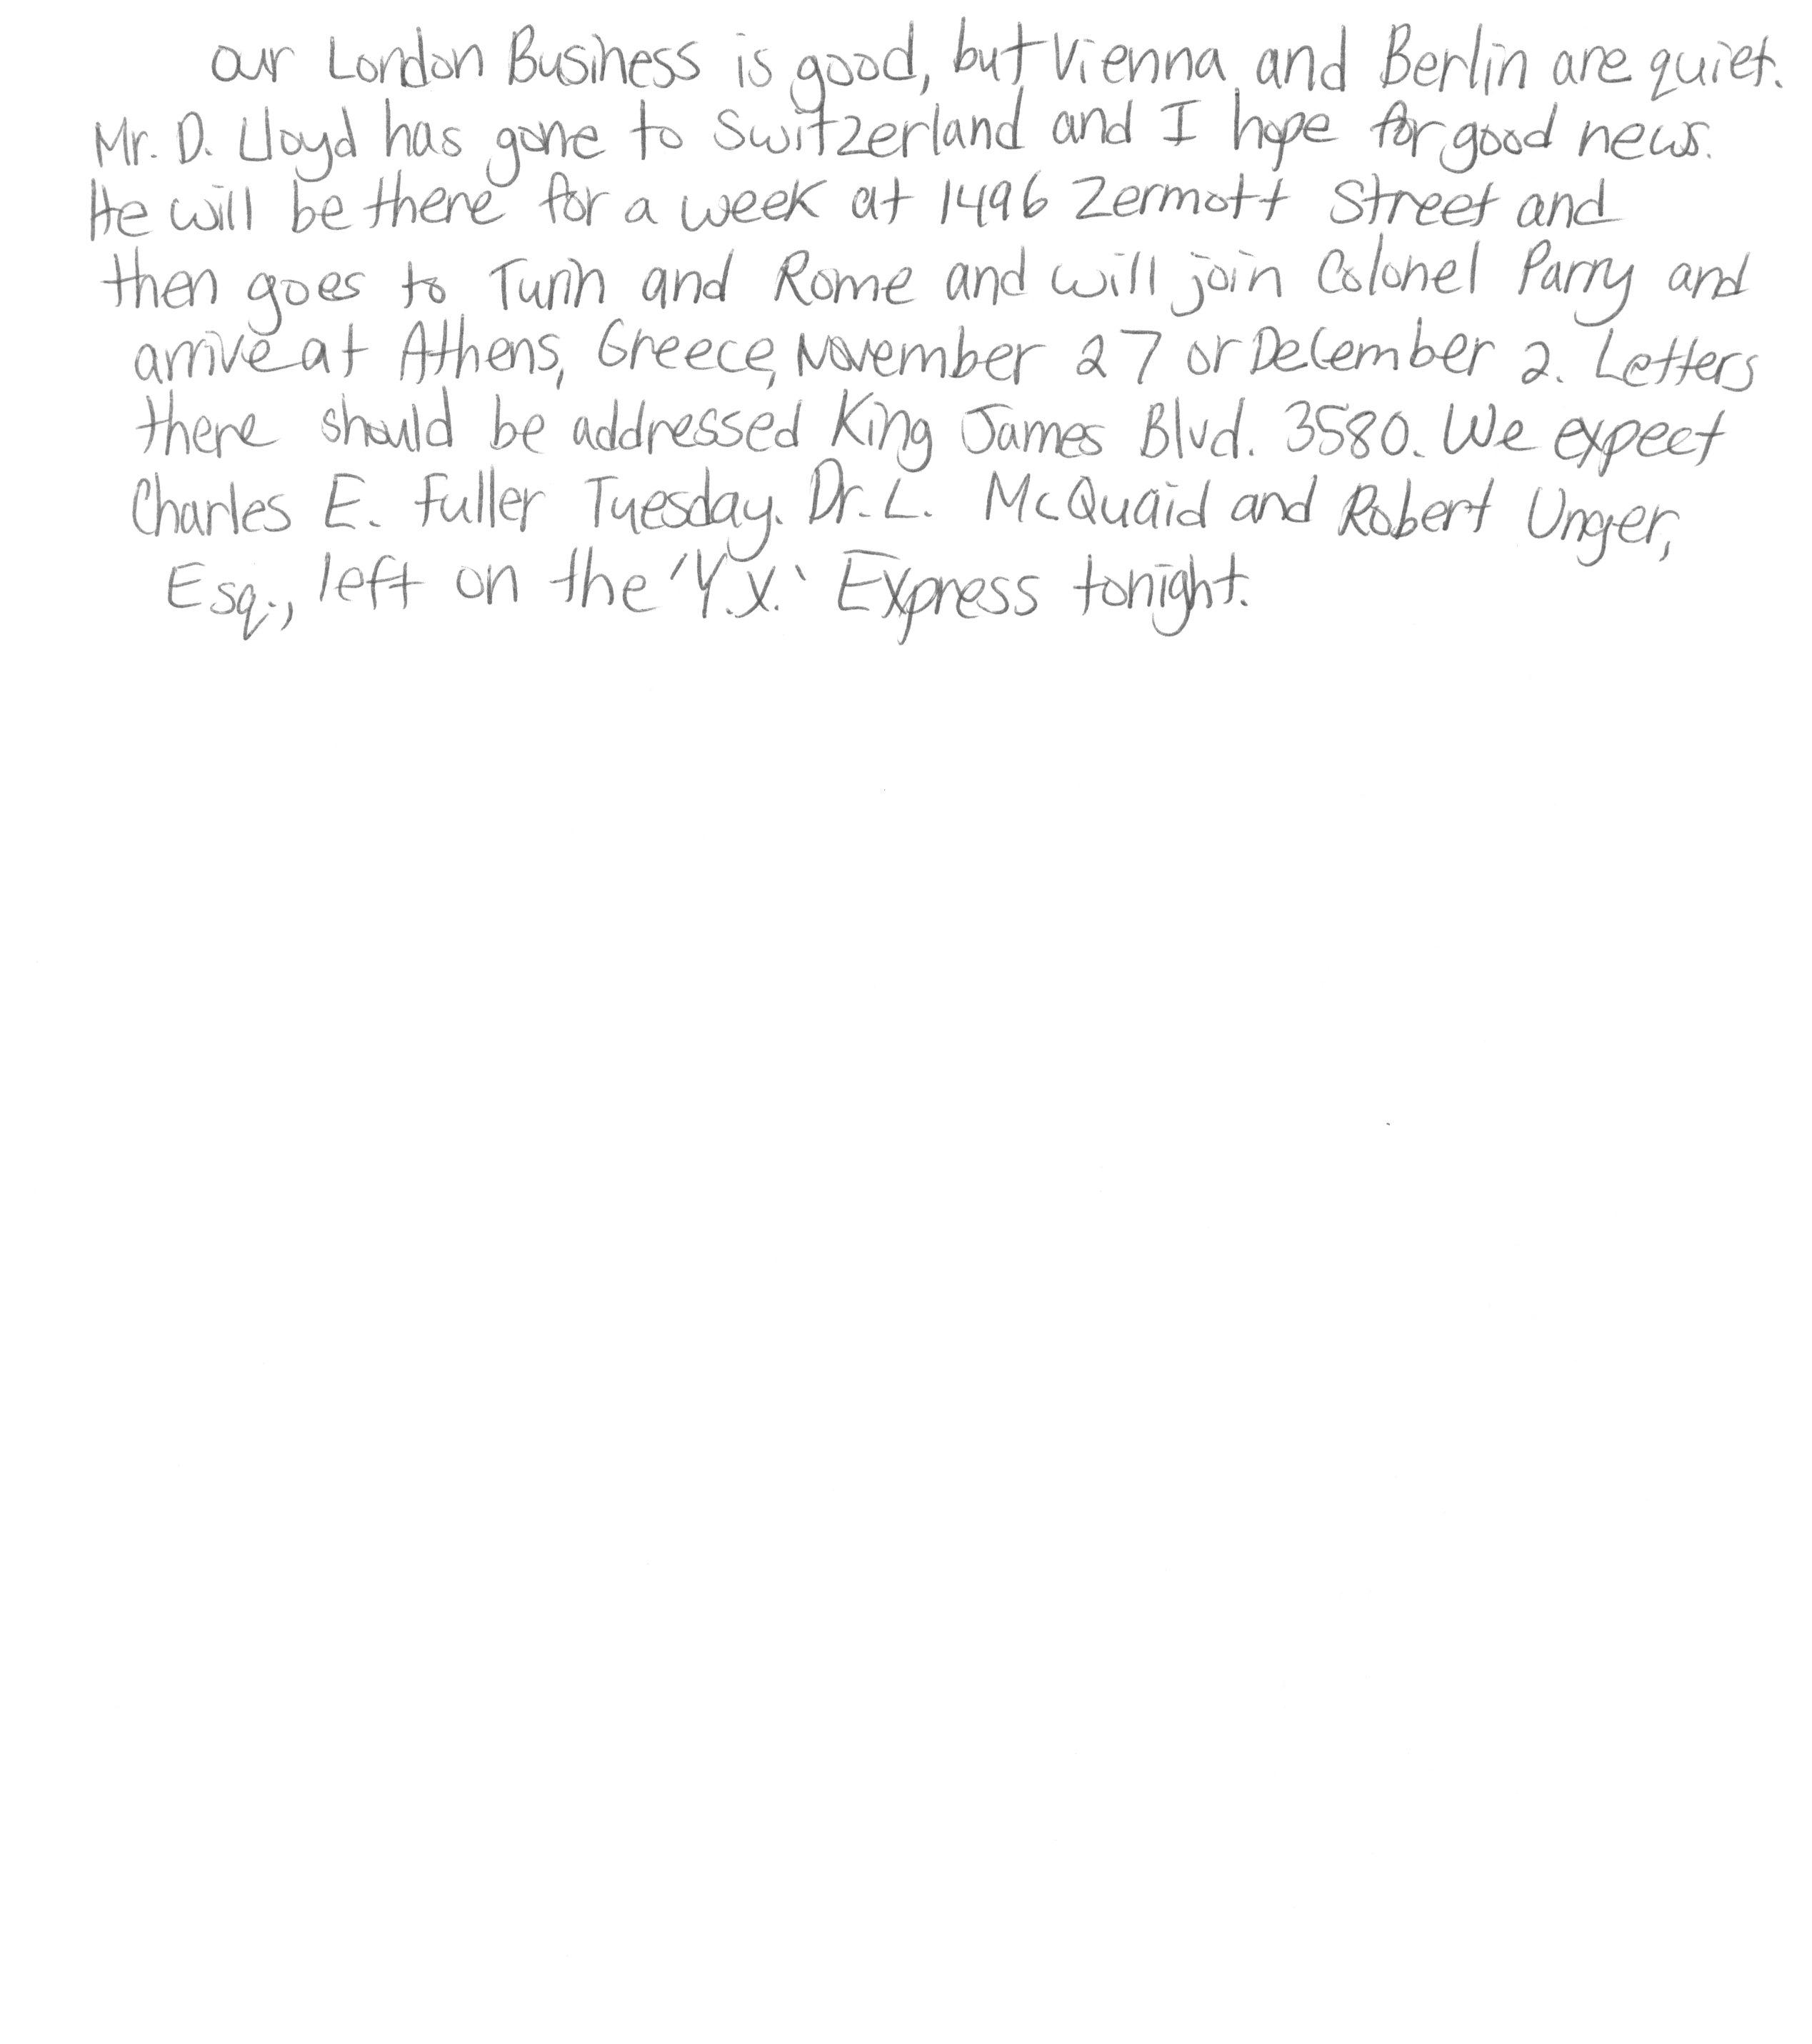 our London Business is good, but Vienna and Berlin are quiet.
Mr. D. Lloyd has gone to Switzerland and I hope for good news.
He will be there for a week at 1496 Zermott Street and
then goes to Turin and Rome and will join Colonel Parry and
arrive at Athens, Greece, November 27 or December 2. Letters
there should be addressed King James Blvd. 3580. We expect
Charles E. Fuller Tuesday. Dr. L. McQuaid and Robert Unger,
Esq., left on the 'Y.X.' Express tonight.